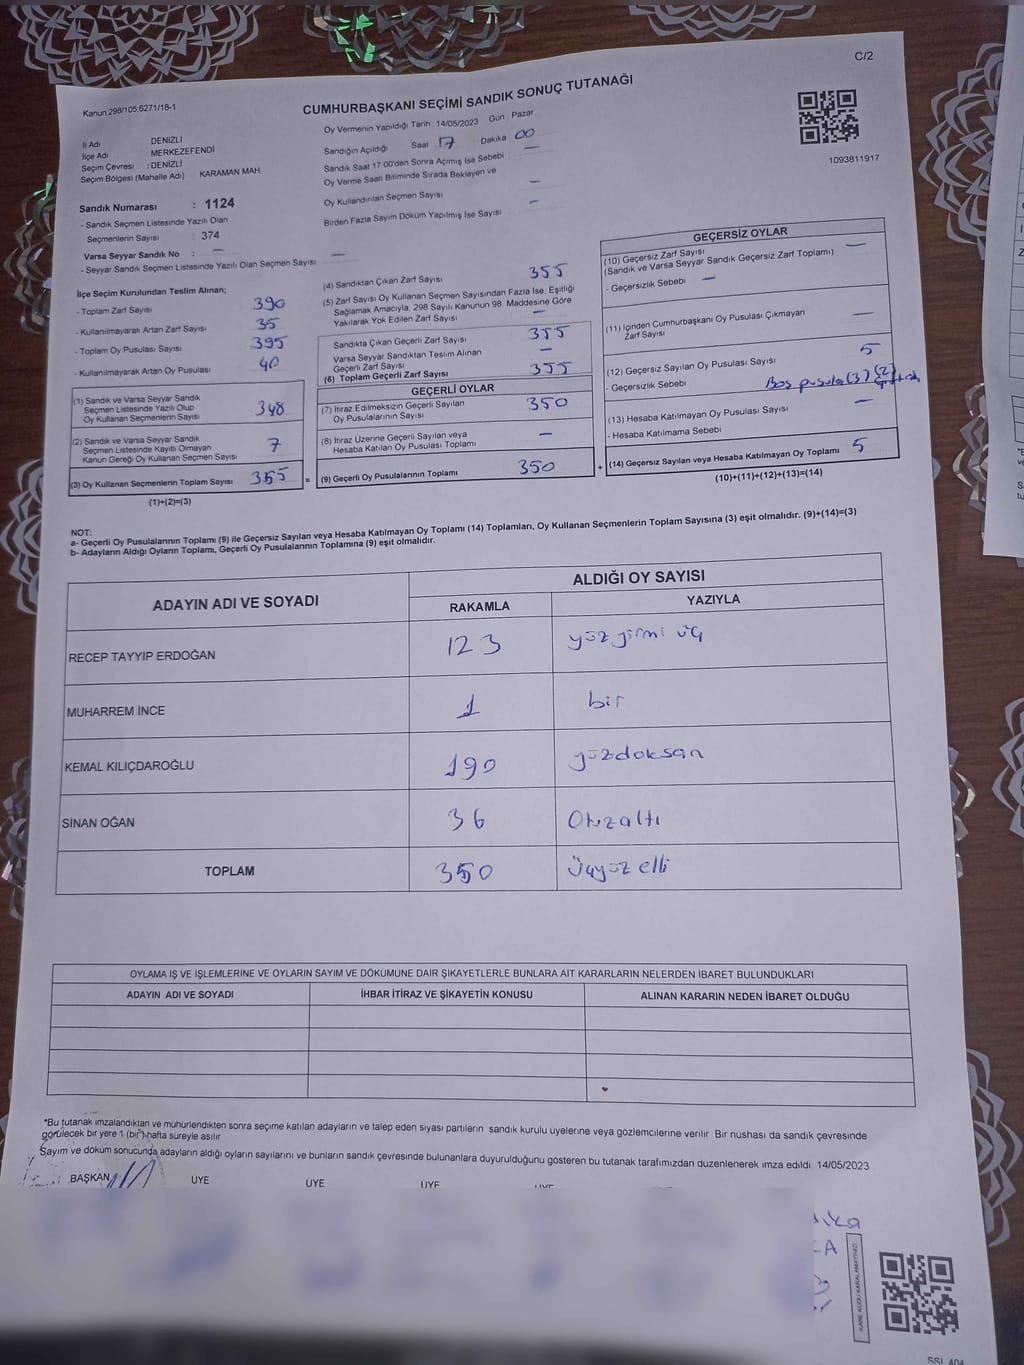 C/2
Kanun:298/105:6271/18-1
CUMHURBAŞKANI SEÇİMİ SANDIK SONUÇ TUTANAĞI
1093811917
İl Adı DENİZLİ
İlçe Adı MERKEZEFENDİ
Seçim Çevresi : DENİZLİ
Seçim Bölgesi (Mahalle Adı) KARAMAN MAH.
Sandık Numarası : 1124
- Sandık Seçmen Listesinde Yazılı Olan
Seçmenlerin Sayısı : 374
Varsa Seyyar Sandık No : —
- Seyyar Sandık Seçmen Listesinde Yazılı Olan Seçmen Sayısı —
Oy Vermenin Yapıldığı Tarih : 14/05/2023 Gün Pazar
Sandığın Açıldığı Saat 17 Dakika 00
Sandık Saat 17:00'den Sonra Açılmış İse Sebebi —
Oy Verme Saati Bitiminde Sırada Bekleyen ve
Oy Kullandırılan Seçmen Sayısı —
Birden Fazla Sayım Döküm Yapılmış İse Sayısı —
İlçe Seçim Kurulundan Teslim Alınan;
- Toplam Zarf Sayısı 390
- Kullanılmayarak Artan Zarf Sayısı 35
- Toplam Oy Pusulası Sayısı 395
- Kullanılmayarak Artan Oy Pusulası 40
(1) Sandık ve Varsa Seyyar Sandık
Seçmen Listesinde Yazılı Olup
Oy Kullanan Seçmenlerin Sayısı 348
(2) Sandık ve Varsa Seyyar Sandık
Seçmen Listesinde Kayıtlı Olmayan
Kanun Gereği Oy Kullanan Seçmen Sayısı 7
(3) Oy Kullanan Seçmenlerin Toplam Sayısı 355
(1)+(2)=(3)
(4) Sandıktan Çıkan Zarf Sayısı 355
(5) Zarf Sayısı Oy Kullanan Seçmen Sayısından Fazla İse, Eşitliği
Sağlamak Amacıyla, 298 Sayılı Kanunun 98. Maddesine Göre
Yakılarak Yok Edilen Zarf Sayısı —
Sandıkta Çıkan Geçerli Zarf Sayısı 355
Varsa Seyyar Sandıktan Teslim Alınan
Geçerli Zarf Sayısı —
(6) Toplam Geçerli Zarf Sayısı 355
GEÇERLİ OYLAR
(7) İtiraz Edilmeksizin Geçerli Sayılan
Oy Pusulalarının Sayısı 350
(8) İtiraz Üzerine Geçerli Sayılan veya
Hesaba Katılan Oy Pusulası Toplamı —
= (9) Geçerli Oy Pusulalarının Toplamı 350
GEÇERSİZ OYLAR
(10) Geçersiz Zarf Sayısı
(Sandık ve Varsa Seyyar Sandık Geçersiz Zarf Toplamı) —
- Geçersizlik Sebebi —
(11) İçinden Cumhurbaşkanı Oy Pusulası Çıkmayan
Zarf Sayısı —
(12) Geçersiz Sayılan Oy Pusulası Sayısı 5
- Geçersizlik Sebebi Boş pusula (3) (2)
(13) Hesaba Katılmayan Oy Pusulası Sayısı —
- Hesaba Katılmama Sebebi
+ (14) Geçersiz Sayılan veya Hesaba Katılmayan Oy Toplamı 5
(10)+(11)+(12)+(13)=(14)
NOT:
a- Geçerli Oy Pusulalarının Toplamı (9) ile Geçersiz Sayılan veya Hesaba Katılmayan Oy Toplamı (14) Toplamları, Oy Kullanan Seçmenlerin Toplam Sayısına (3) eşit olmalıdır. (9)+(14)=(3)
b- Adayların Aldığı Oyların Toplamı, Geçerli Oy Pusulalarının Toplamına (9) eşit olmalıdır.
ADAYIN ADI VE SOYADI
ALDIĞI OY SAYISI
RAKAMLA YAZIYLA
RECEP TAYYİP ERDOĞAN 123 yüz yirmi üç
MUHARREM İNCE 1 bir
KEMAL KILIÇDAROĞLU 190 yüzdoksan
SİNAN OĞAN 36 Otuzaltı
TOPLAM 350 Üçyüz elli
OYLAMA İŞ VE İŞLEMLERİNE VE OYLARIN SAYIM VE DÖKÜMÜNE DAİR ŞİKAYETLERLE BUNLARA AİT KARARLARIN NELERDEN İBARET BULUNDUKLARI
ADAYIN ADI VE SOYADI İHBAR İTİRAZ VE ŞİKAYETİN KONUSU ALINAN KARARIN NEDEN İBARET OLDUĞU
*Bu tutanak imzalandıktan ve mühürlendikten sonra seçime katılan adayların ve talep eden siyasi partilerin sandık kurulu üyelerine veya gözlemcilerine verilir. Bir nüshası da sandık çevresinde
görülecek bir yere 1 (bir) hafta süreyle asılır
Sayım ve döküm sonucunda adayların aldığı oyların sayılarını ve bunların sandık çevresinde bulunanlara duyurulduğunu gösteren bu tutanak tarafımızdan düzenlenerek imza edildi. 14/05/2023
BAŞKAN ÜYE ÜYE ÜYE ÜYE